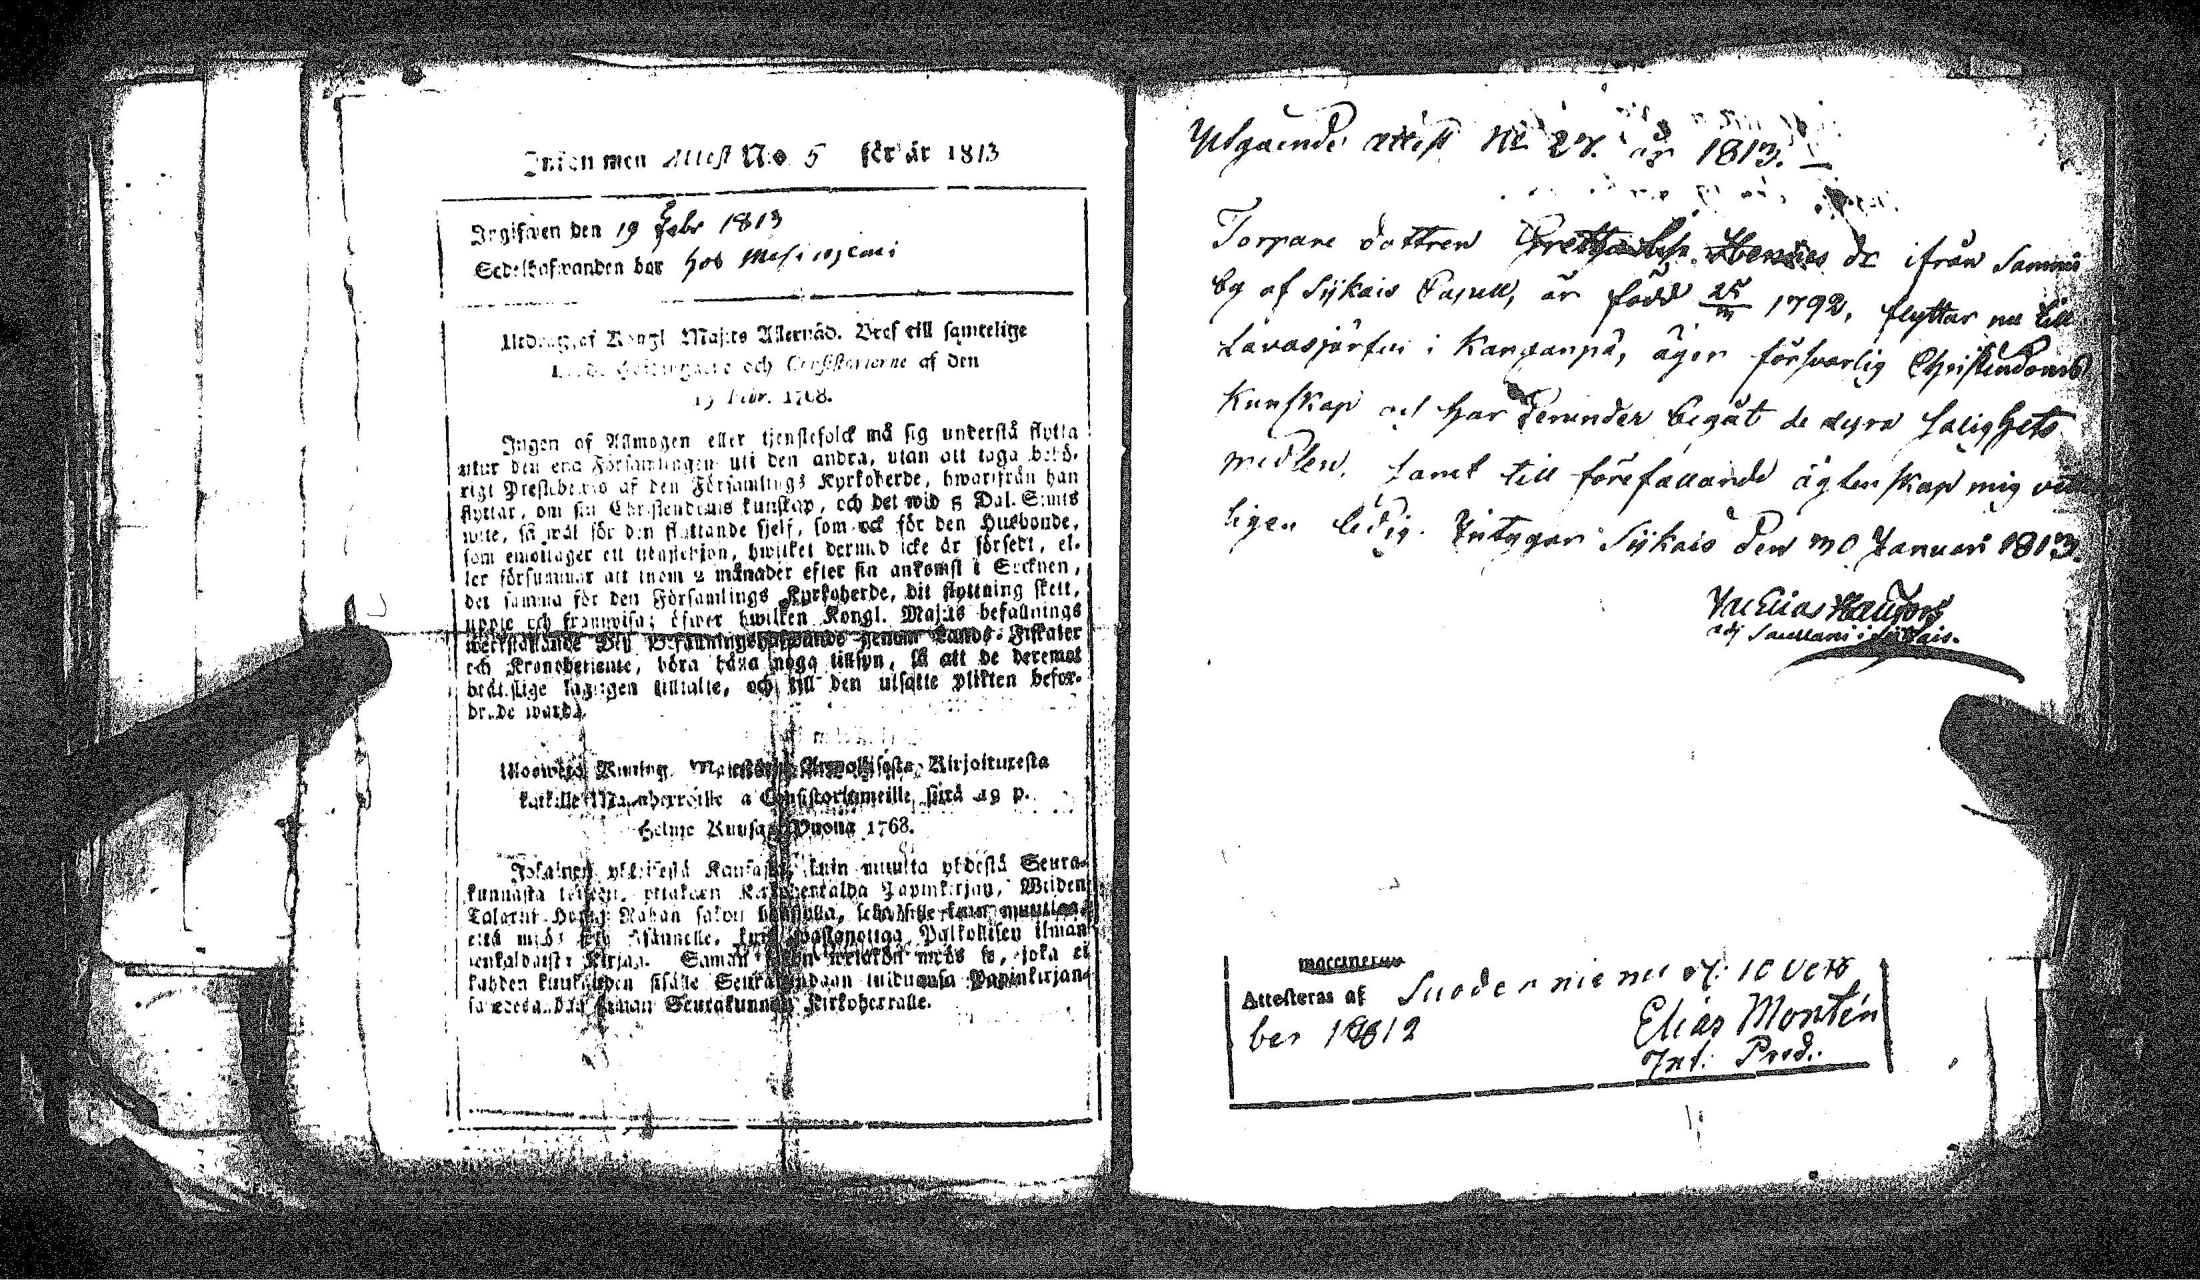 Inkommen Attest No 5 för år 1813
Ingifwen den 19 Febr 1813
Sedelhafwanden bor hos
Utdrag af Kongl. Maj:ts Allernåd. Bref till samtelige
och Consistorierne af den
19 Febr. 1768.
Ingen af Allmogen eller tjenstefolck må sig understå flytta
utur den ena Församlingen uti den andra, utan att taga behö-
rigt Prestebewis af den Församlings Kyrkoherde, hwarifrån han
flyttar, om sin Christendoms kunskap, och det wid 5 Dal. S:mts
wite, så wäl för den flyttande sjelf, som ock för den Husbonde,
som emottager ett tienstehjon, hwilket dermed icke är försedt, el-
ler försummar att inom 2 månader efter sin ankomst i Socknen,
det samma för den Församlings Kyrkoherde, dit flyttning skett,
uppte och framwisa; öfwer hwilken Kongl. Maj:ts befallnings
werkställande Dess Befallningshafwande genom Lands-Fiskaler
och Kronobetjente, böra hafwa noga tillsyn, så att de deremot
brottslige lagligen tilltalte, och till den utsatte plikten befor-
drade warda.
Ulosweto Kuning. Majestätin Armollisesta Kirjoituxesta
kaikille Maanherroille ja Consistoriumeille, siitä 19 p.
Helme Kuusa Wuonna 1768.
Jokainen yhteisestä Kansasta, kuin muutta yhdestä Seura-
kunnasta toiseen, ottakoon Kirkoherralda Papinkirjan, Wiiden
Talarin Hopia Rahan sakon
että myös sille Isännelle, kuin wastanottaa Palkollisen ilman
senkaldaista Kirjaa. Saman sakon wetäkön myös se, joka ei
kahden kuukauden sisälle Seurakundaan tulduansa Papinkirjan-
sa edesanna saman Seurakunnan Kirkoherralle.
Utgående attest No 27. år 1813.
Torpare dottren Gretha Lisa dr ifrån Sammi
by af Sijkais Capell, är född 25 1792, flyttar nu till
Lavasjärfwi i Kanganpä, äger försvarlig Christendoms
Kunskap och har derunder begåt de dyra Salighets
medlen, samt till förefallande ägtenskap mig vet-
ligen ledig. Intygar Sijkais den 30 Januari 1813.
Elias
adj Sacellani i Sijkais.
Attesteras af Suoderniemi d. 10 Octo
ber 1812
Elias Montén
Præd.